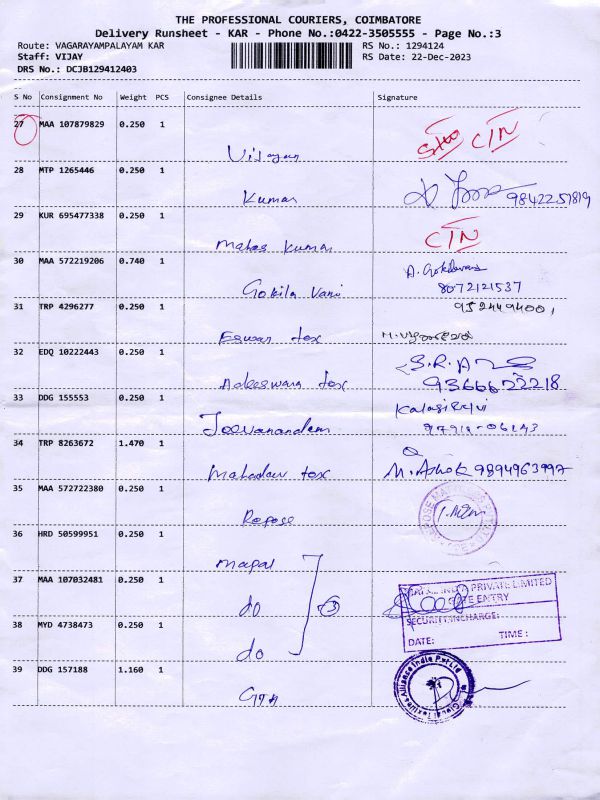 THE PROFESSIONAL COURIERS, COIMBATORE
Delivery Runsheet - KAR - Phone No.:0422-3505555 - Page No.:3
Route: VAGARAYAMPALAYAM KAR RS No.: 1294124
Staff: VIJAY RS Date: 22-Dec-2023
DRS No.: DCJB129412403
S No Consignment No Weight PCS Consignee Details Signature
27 MAA 107879829 0.250 1 CTN
28 MTP 1265446 0.250 1 Kumar 9842257819
29 KUR 695477338 0.250 1 Mahes Kumar CTN
30 MAA 572219206 0.740 1 Gokila Vani 8072121537
31 TRP 4296277 0.250 1 Eswar tex
32 EDQ 10222443 0.250 1 Adeeswara tex
33 DDG 155553 0.250 1 Jeevanandam
34 TRP 8263672 1.470 1 Mahadev tex M. Ashok 9894963997
35 MAA 572722380 0.250 1 Repose
36 HRD 50599951 0.250 1 magal
37 MAA 107032481 0.250 1 do 3 PRIVATE LIMITED
SECURITY INCHARGE:
38 MYD 4738473 0.250 1 do DATE: TIME :
39 DDG 157188 1.160 1 Alliance India Pvt Ltd